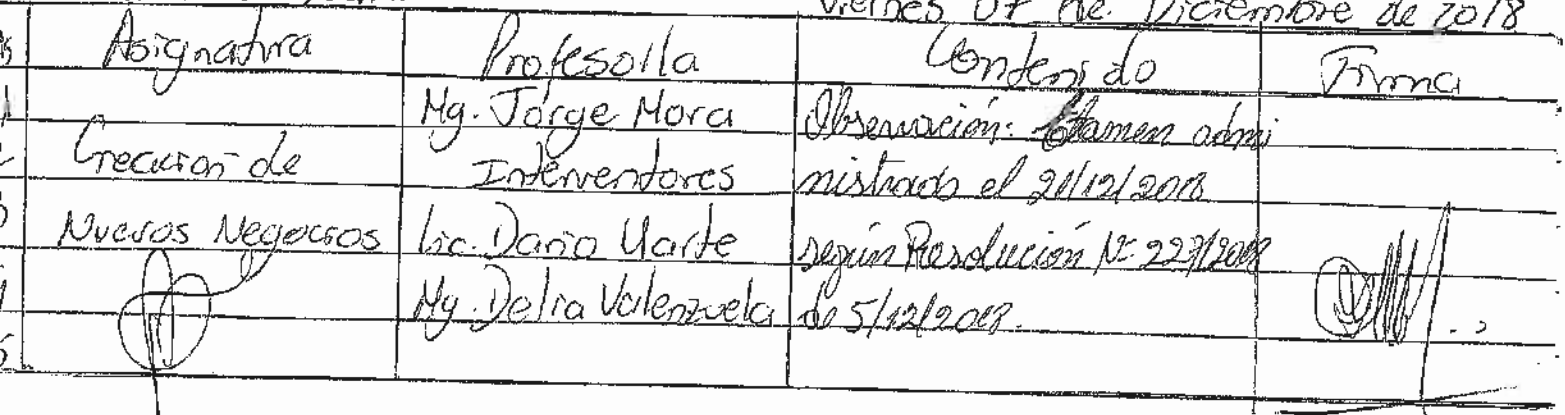 Viernes 07 de. Diciembre de 2018
Asignatura Profesor/a Contenido Firma
Mg. Jorge Mora Observación: Examen admi
Creación de Interventores nistrado el 21/12/2018
Nuevos Negocios Lic. Dario Uarte según Resolución Nº 227/2018
Mg. Delia Valenzuela de 5/12/2018.